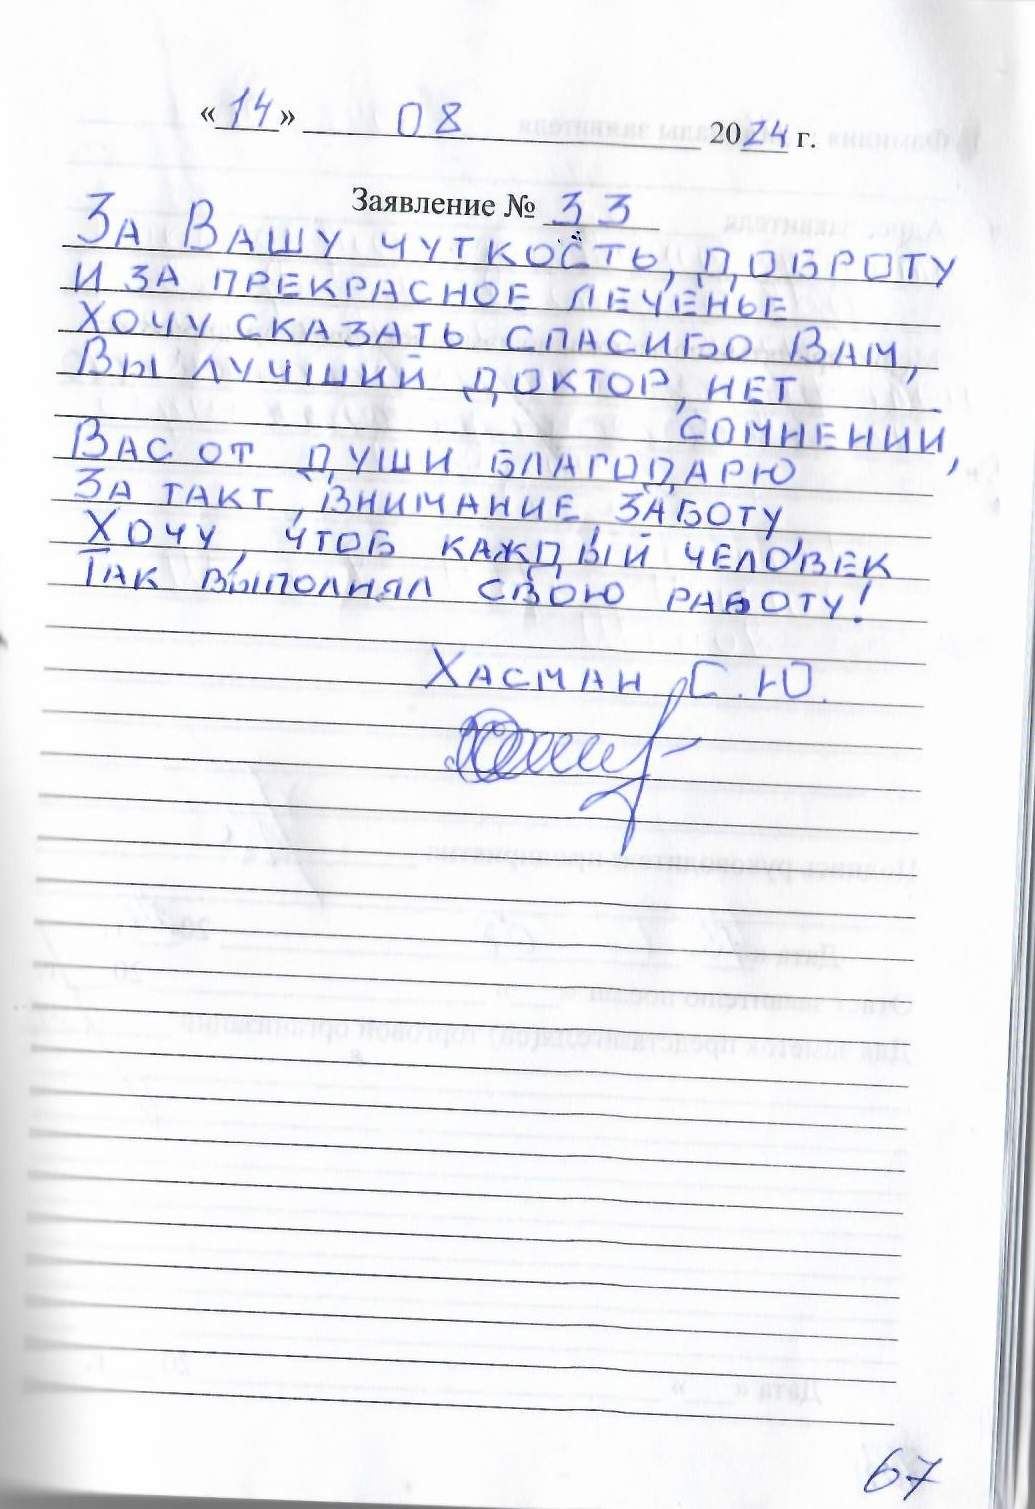 «14» 08 2024 г.
Заявление № 33
За Вашу чуткость, доброту
и за прекрасное леченье
Хочу сказать спасибо Вам,
Вы лучший доктор, нет
сомнений,
Вас от души благодарю
За такт, внимание, заботу
Хочу, чтоб каждый человек
Так выполнял свою работу!
Хасман С.Ю.
67